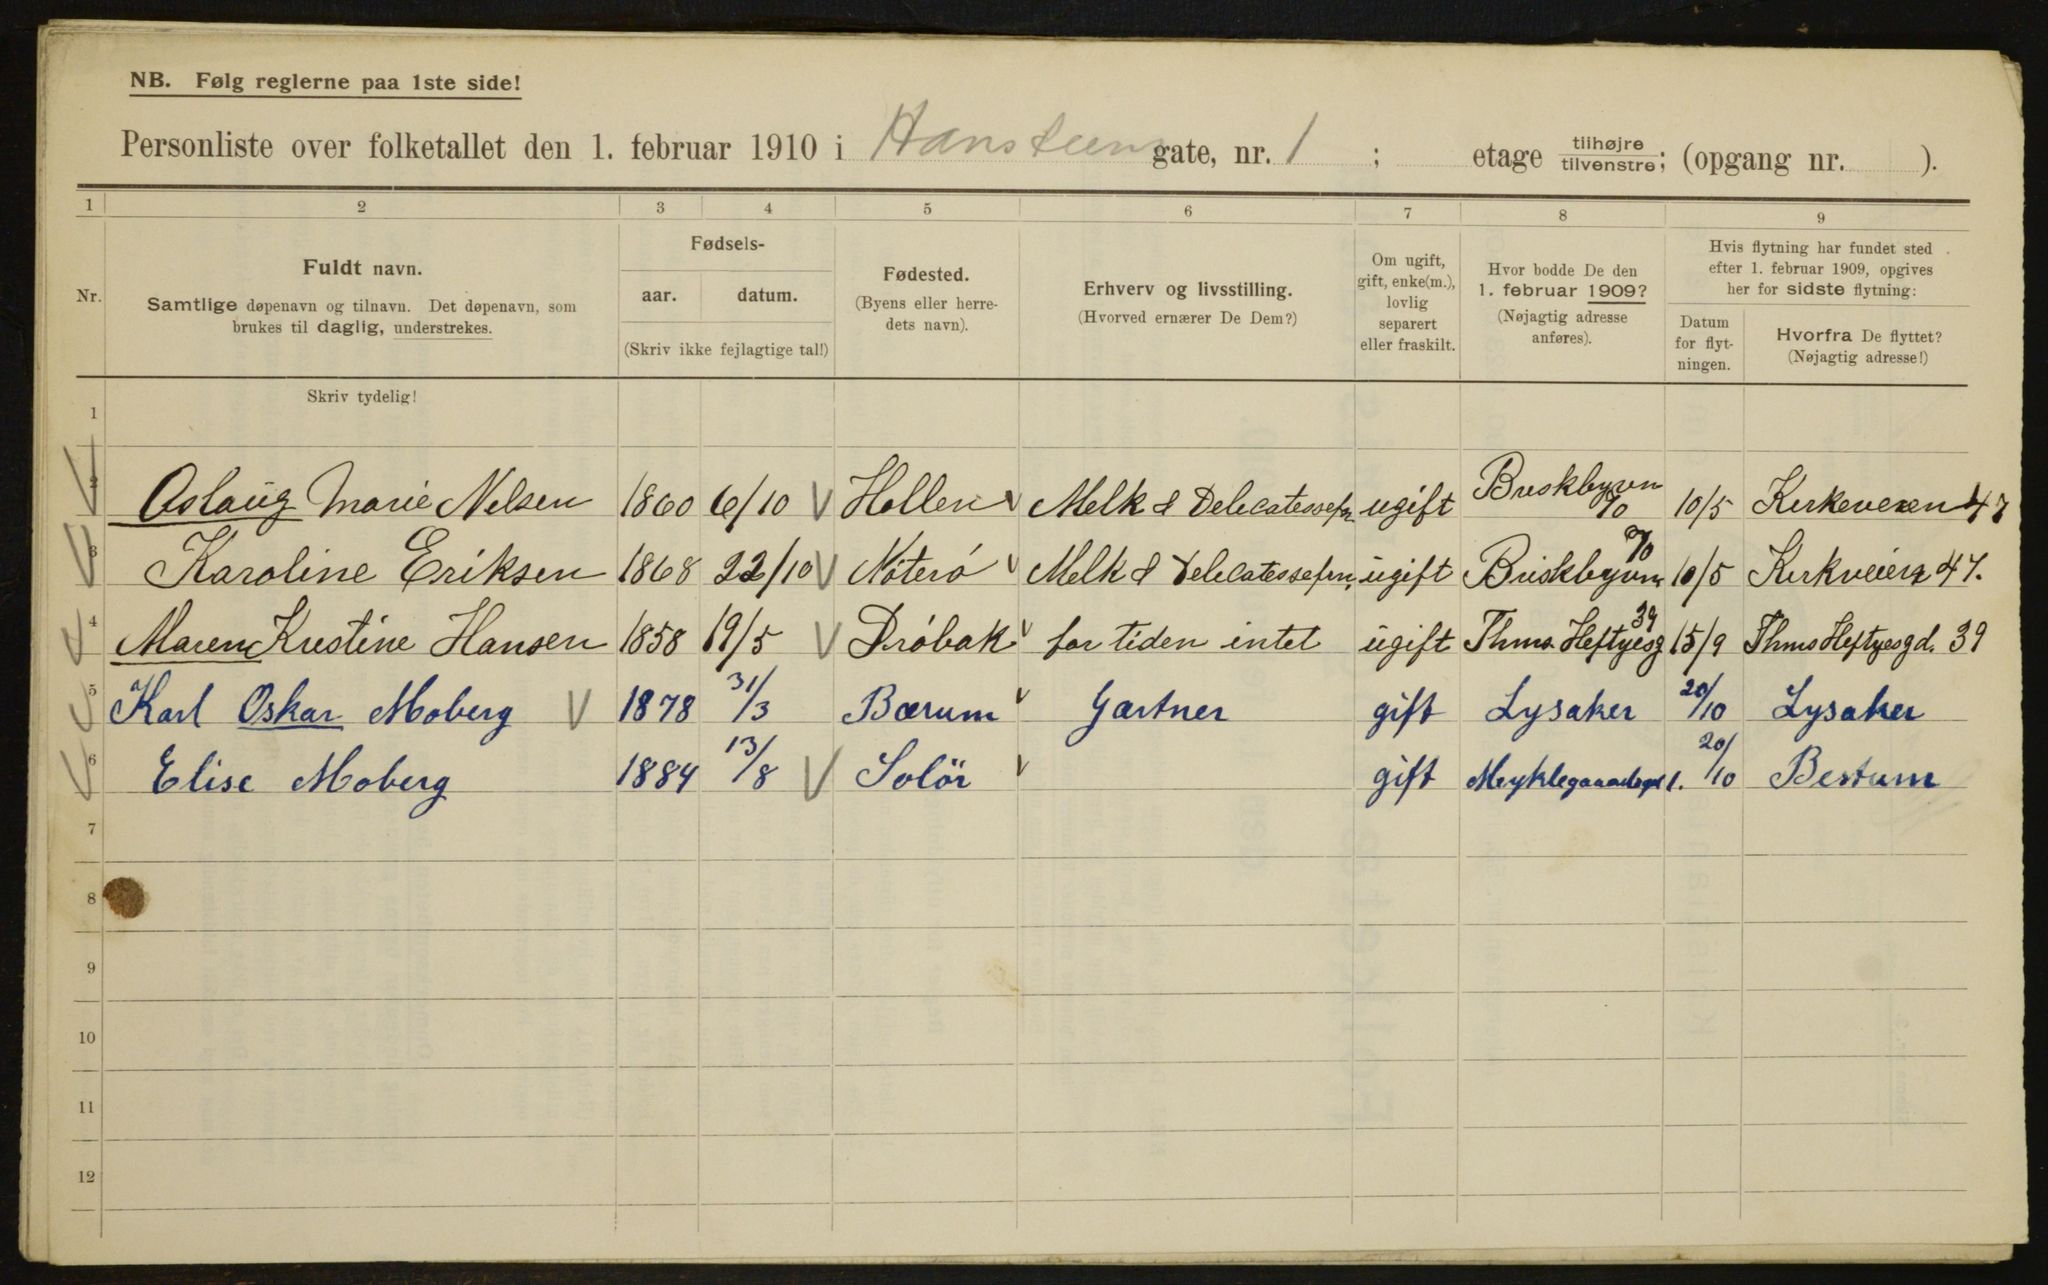 NB. Følg reglerne paa 1ste side!
Personliste over folketallet den 1. februar 1910 i Hansteens gate, nr. 1 ; etage tilhøjre tilvenstre; (opgang nr. ).
1 2 3 4 5 6 7 8 9
Nr.
Fuldt navn.
Samtlige døpenavn og tilnavn. Det døpenavn, som
brukes til daglig, understrekes.
Fødsels-
aar. datum.
(Skriv ikke fejlagtige tal!)
Fødested.
(Byens eller herre-
dets navn).
Erhverv og livsstilling.
(Hvorved ernærer De Dem?)
Om ugift,
gift, enke(m.),
lovlig
separert
eller fraskilt.
Hvor bodde De den
1. februar 1909?
(Nøjagtig adresse
anføres).
Hvis flytning har fundet sted
efter 1. februar 1909, opgives
her for sidste flytning:
Datum
for flyt-
ningen.
Hvorfra De flyttet?
(Nøjagtig adresse!)
Skriv tydelig!
1
2 Aslaug Marie Nelsen 1860 6/10 Hollen Melk & Delecatessefr. ugift Briskbyvn 10/5 Kirkeveien 47
3 Karoline Eriksen 1868 22/10 Nøterø Melk & Delecatessefrn. ugift Briskbyvn 10/5 Kirkveien 47.
4 Maren Kristine Hansen 1858 19/5 Drøbak for tiden intet ugift Thms Heftyesg 39 15/9 Thms Heftyesgd. 39
5 Karl Oskar Moberg 1878 31/3 Bærum Gartner gift Lysaker 20/10 Lysaker
6 Elise Moberg 1884 13/8 Solör gift 20/10 Bestum
7
8
9
10
11
12